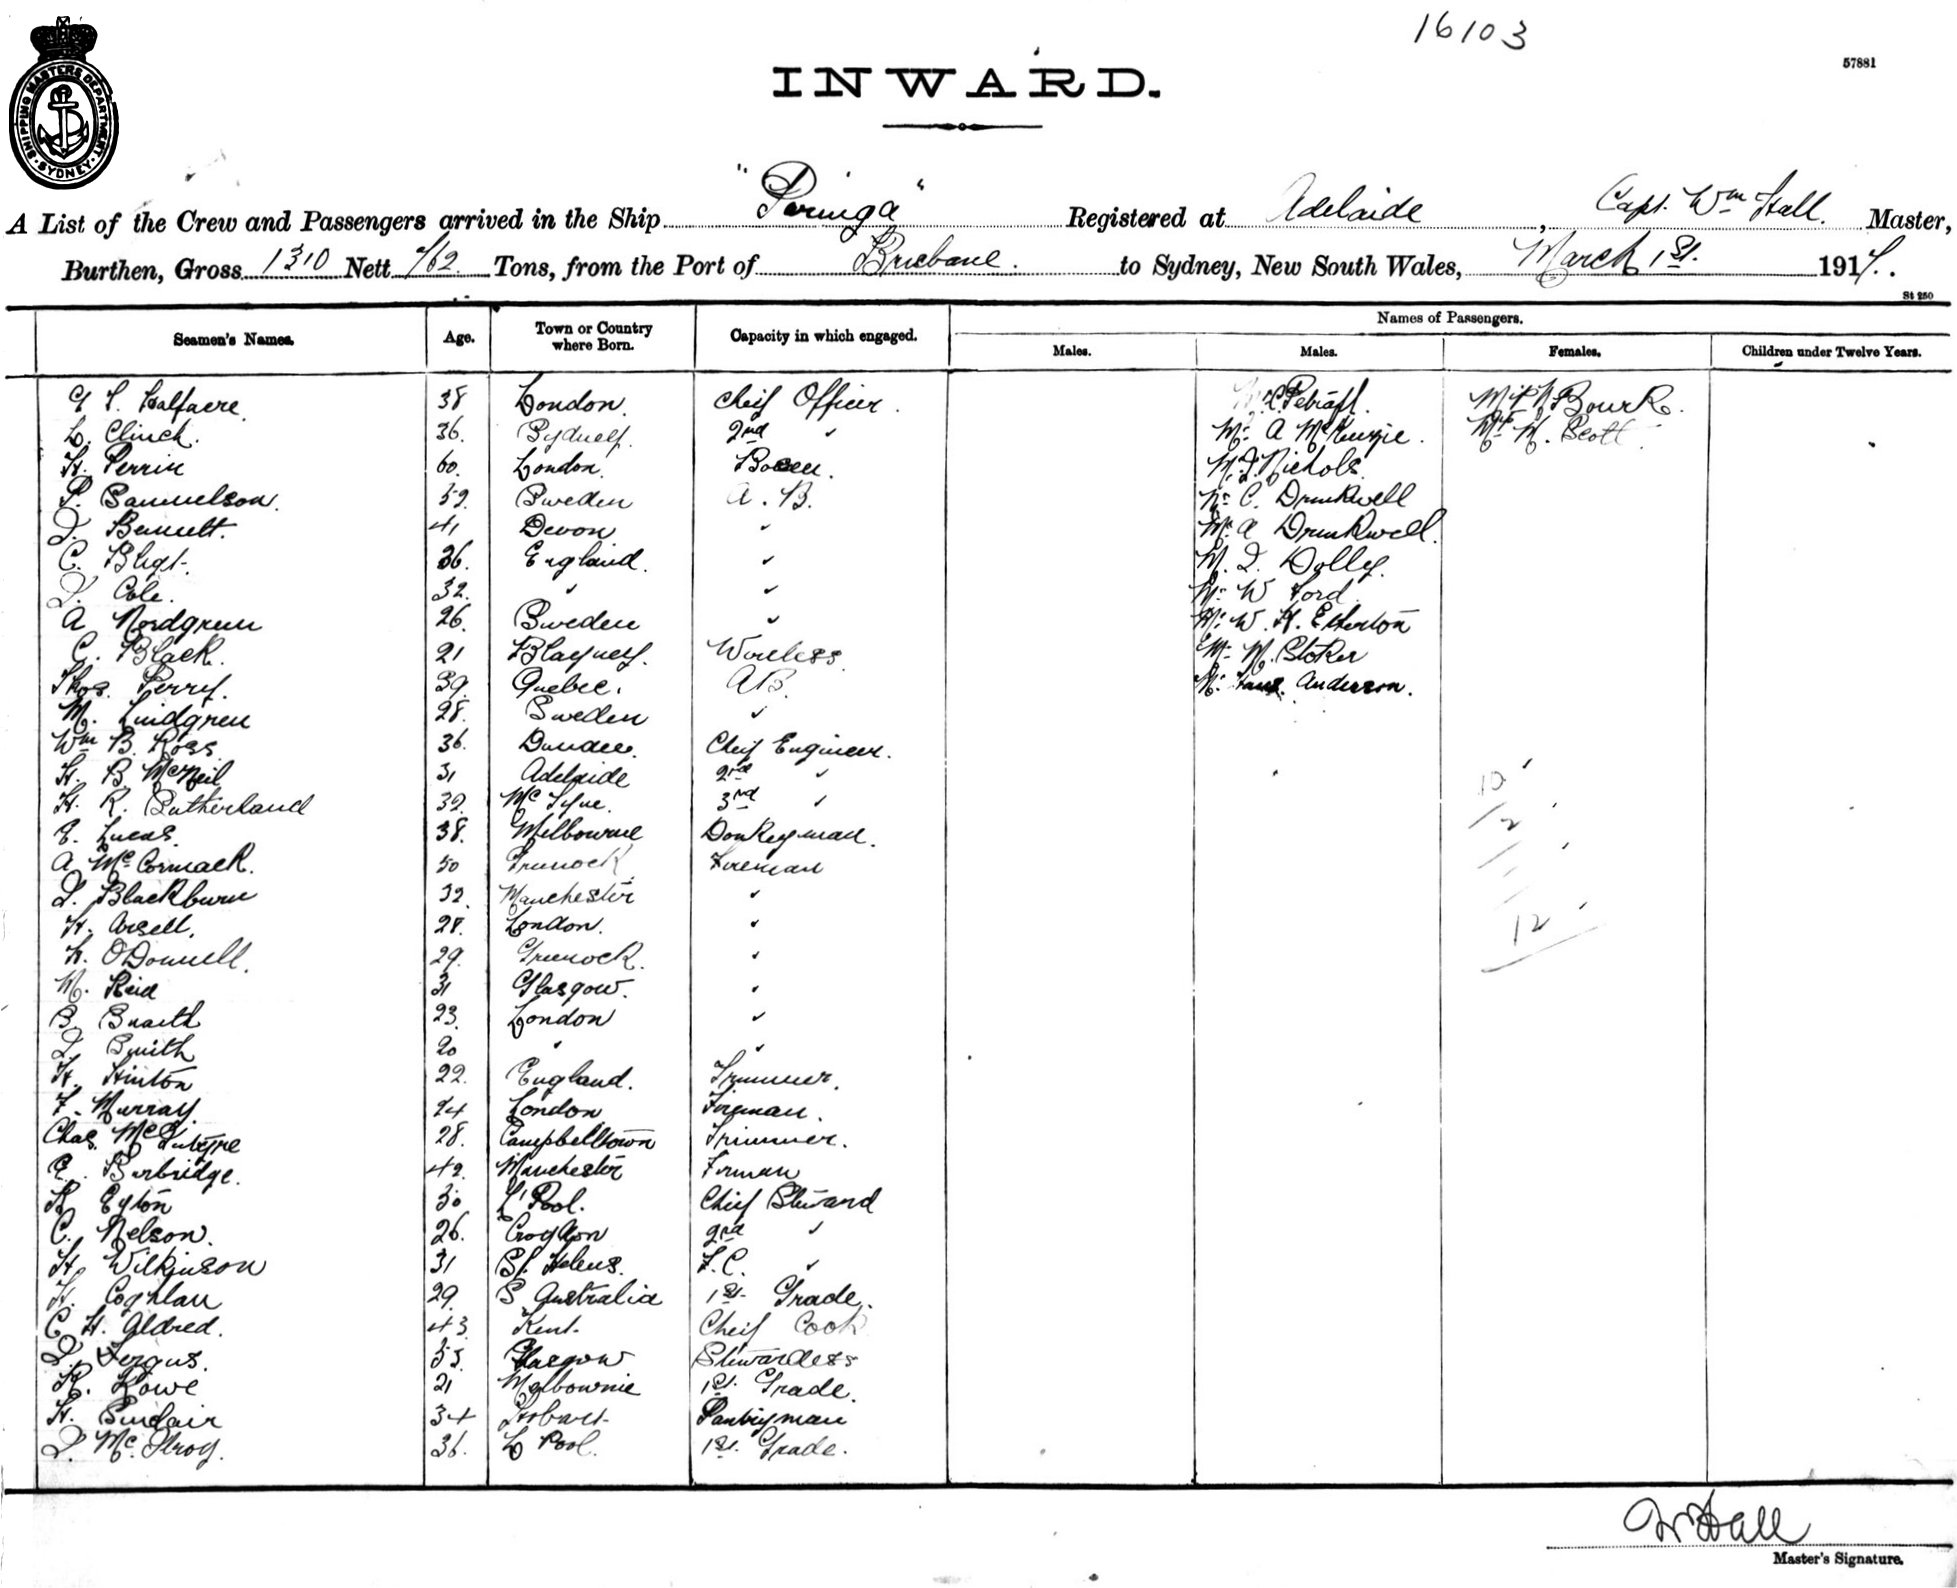 16103
57881
SHIPPING MASTERS DEPARTMENT · SYDNEY ·
INWARD.
A List of the Crew and Passengers arrived in the Ship "Paringa" Registered at Adelaide, Capt. Wm Hall. Master,
Burthen, Gross 1310 Nett Tons, from the Port of Brisbane. to Sydney, New South Wales, March 1st. 1917.
St 250
Seamen's Names. Age. Town or Country where Born. Capacity in which engaged. Names of Passengers.
Males. Males. Females. Children under Twelve Years.
Halfacre. 38 London. Cheif Officer. Bourk.
L. Clinch. 36. Sydney. 2nd " Mr A McKenzie. H. Scott
H. Perrin 60. London. Nichols
P. Samuelson. 59. Sweden A. B. Mr C. Drunkwell
Bennett. 41 Devon " Mr A Drunkwell.
C. 36. England. " Dolley.
Cole. 32. " " Mr W Ford
A Nordgren 26. Sweden " Mr W. H. Etherton
C. Black. 21 Blayney. Wireless. Mr M. Stoker
Thos. Perry. 39. Quebec. AB. Mr Hans. Anderson.
M. Lindgren 28. Sweden "
Wm B. Ross 36. Dundee. Cheif Engineer.
H. B. McNeil 31 Adelaide 2nd "
H. R. Sutherland 32. 3rd "
E. Lucas. 38. Melbourne Donkeyman.
A McCormack. 50 Greenock. Fireman
Blackburn 32. Manchester "
H. 28. London. "
H. O'Donnell. 29. Greenock. "
M. Reid 31 Glasgow. "
B. 23. London "
Smith 20 " "
H. Hinton 22. England. Trimmer.
F. Murray. London Fireman.
Chas McIntyre 28. Campbelltown Trimmer.
E. Burbridge. 42. Manchester Firman
Eyton 30 L'Pool. Chief Steward
C. Nelson. 26. Croydon 2nd "
H. Wilkinson 31 St. Helens. F. C. "
H. Coghlan 29 S Australia 1st. Grade.
C. H. Aldred. 43. Kent. Cheif Cook
Fergus. 53. Glasgow Stewardess
R. Rowe 21 Melbourne 1st. Grade.
H. Sinclair 34 Hobart. Pantryman
McIlroy. 36. L Pool. 1st. Grade.
10
2
12
W Hall
Master's Signature.